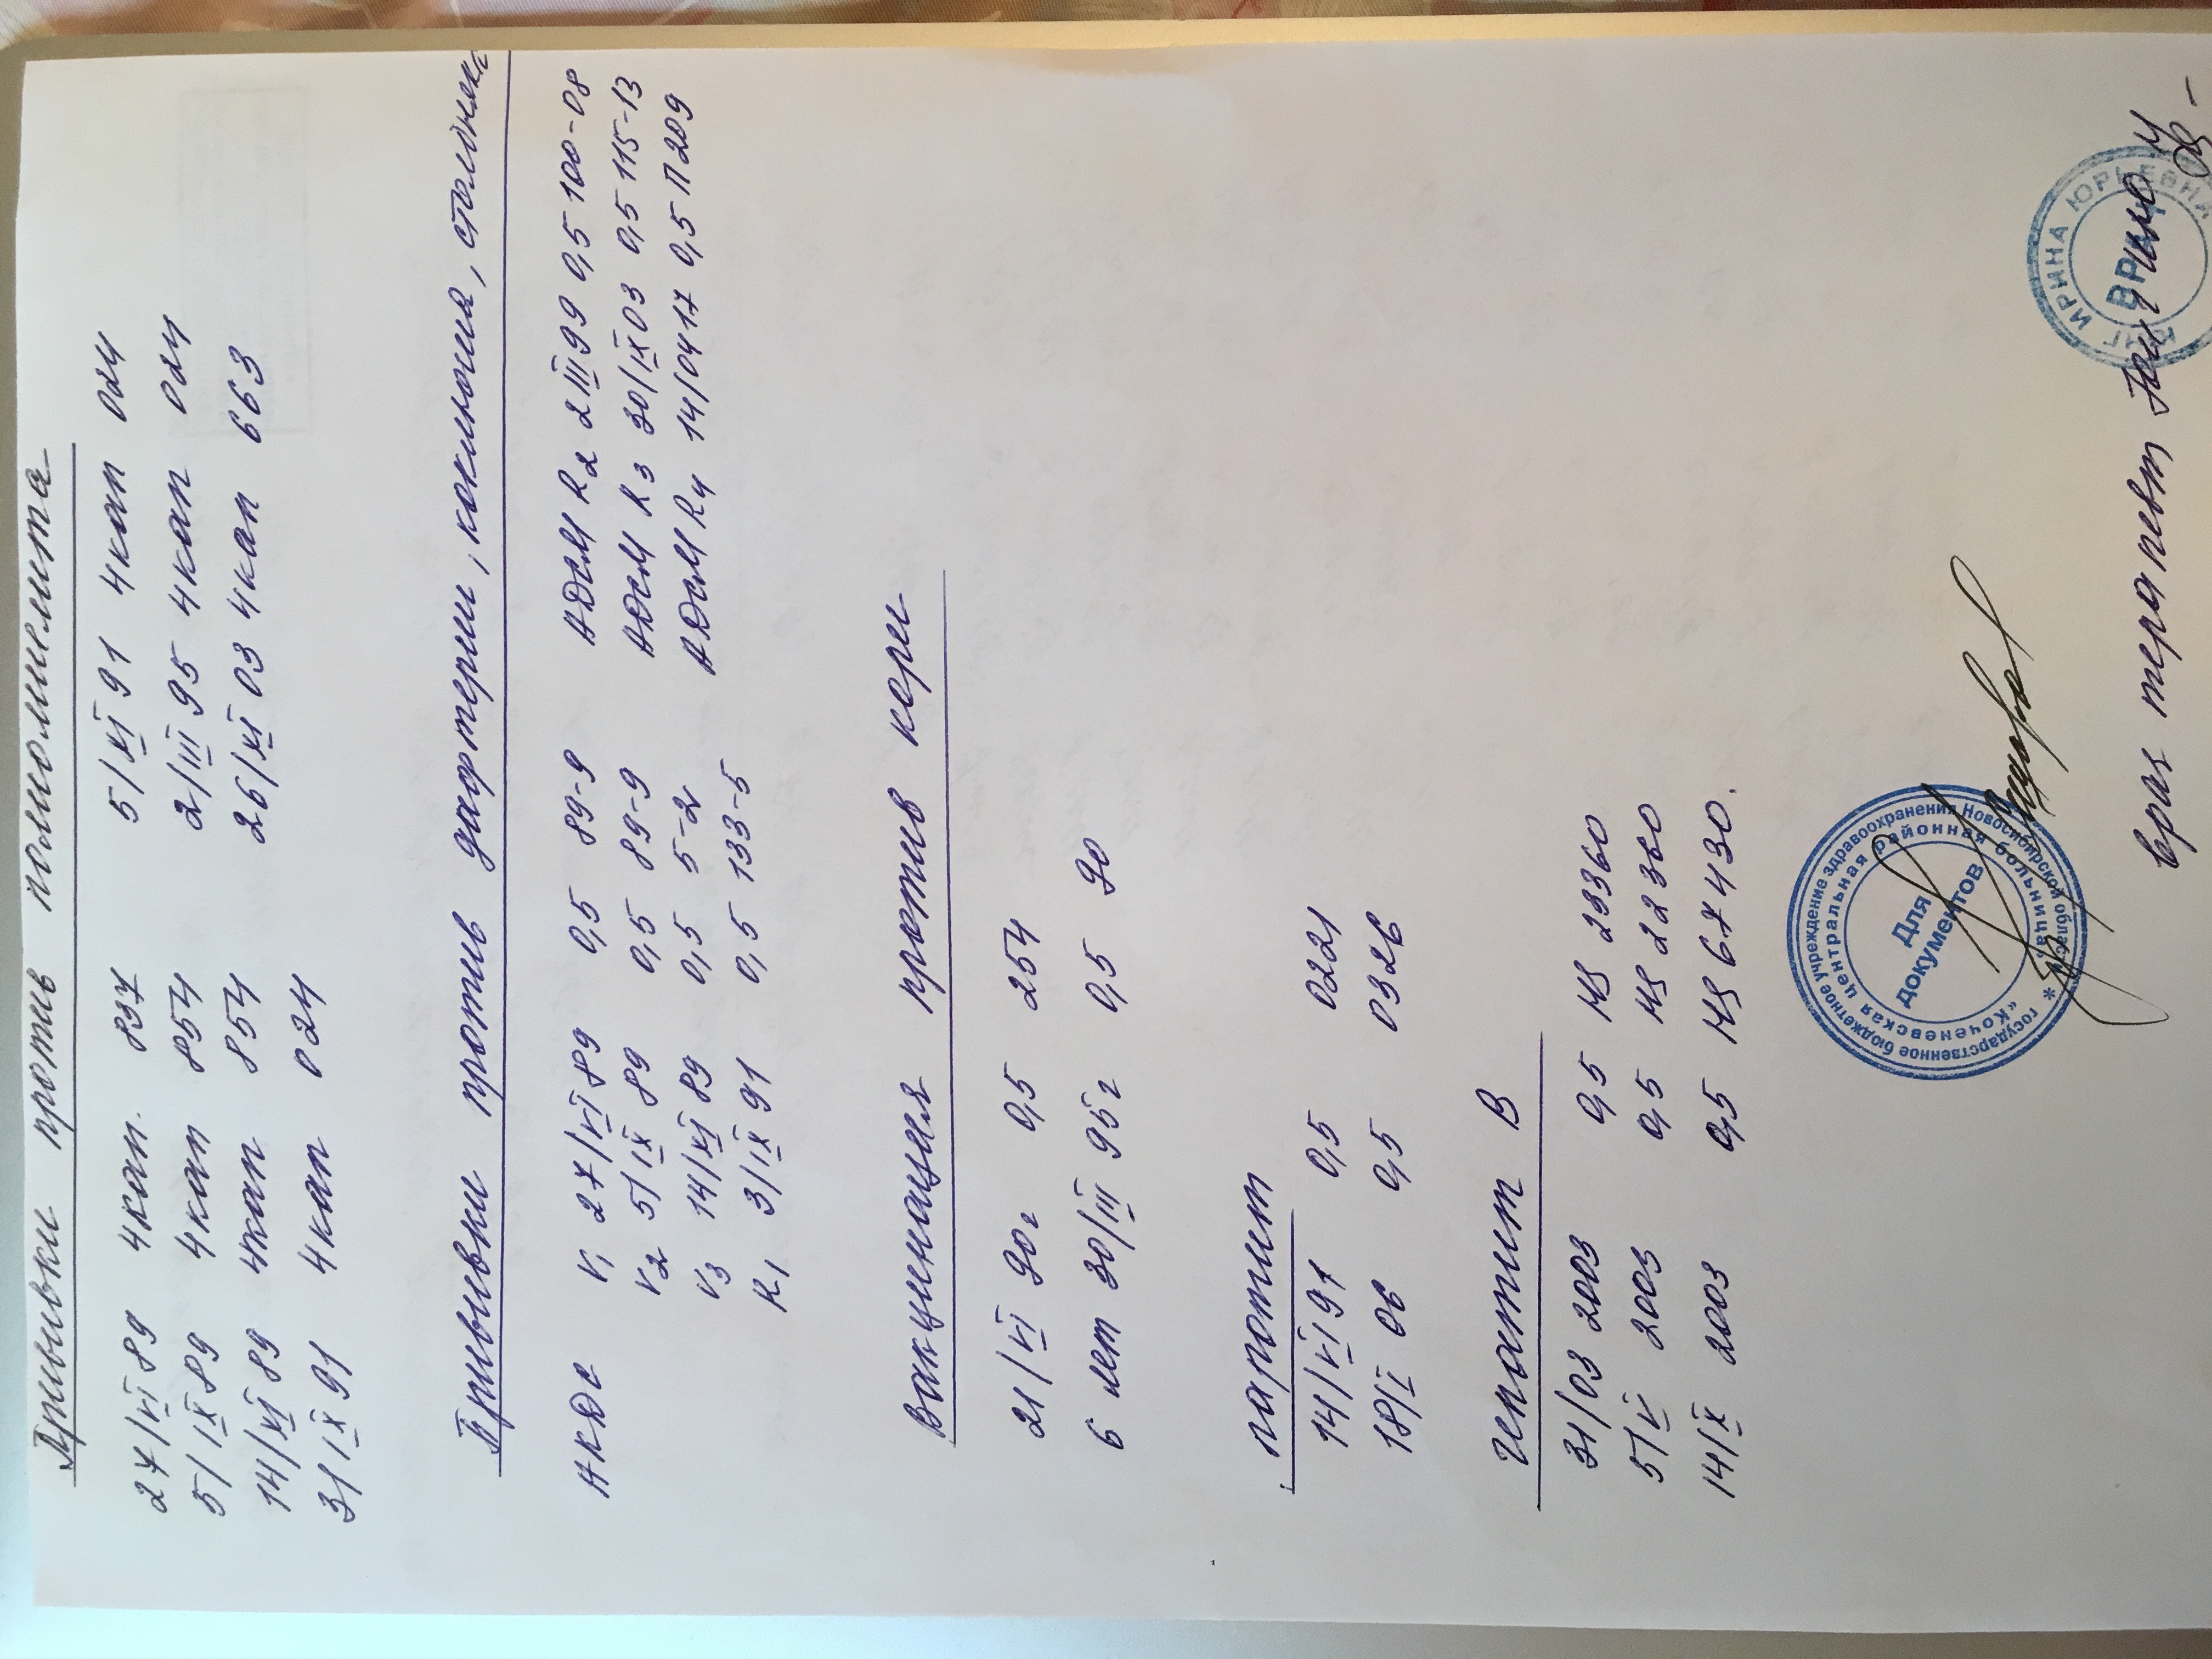 Прививки против полиомиелита
27/VI 89 4кап. 837 5/XI 91 4кап 024
5/IX 89 4кап 854 2/III 95 4кап 024
14/XI 89 4кап 854 26/XI 03 4кап 663
3/IX 91 4кап 024
Прививки против дифтерии, коклюша, столбняка
АКДС V1 27/VI 89 0,5 89-9 АДСМ R2 2 III 99 0,5 100-08
V2 5/IX 89 0,5 89-9 АДСМ R3 30/IX 03 0,5 115-13
V3 14/XI 89 0,5 5-2 АДСМ R4 14/04 17 0,5 П209
R1 3/IX 91 0,5 133-5
Вакцинация против кори
21/VI 90г 0,5 254
6 лет 30/III 95г 0,5 90
паротит
14/VI 91 0,5 0221
18/I 06 0,5 0326
Гепатит В
31/03 2003 0,5 23360
5/V 2003 0,5 22360
14/X 2003 0,5 67430.
государственное бюджетное учреждение здравоохранения Новосибирской области
«Коченевская центральная районная больница»
Для документов
врач терапевт
ИРИНА ЮРЬЕВНА
ВРАЧ